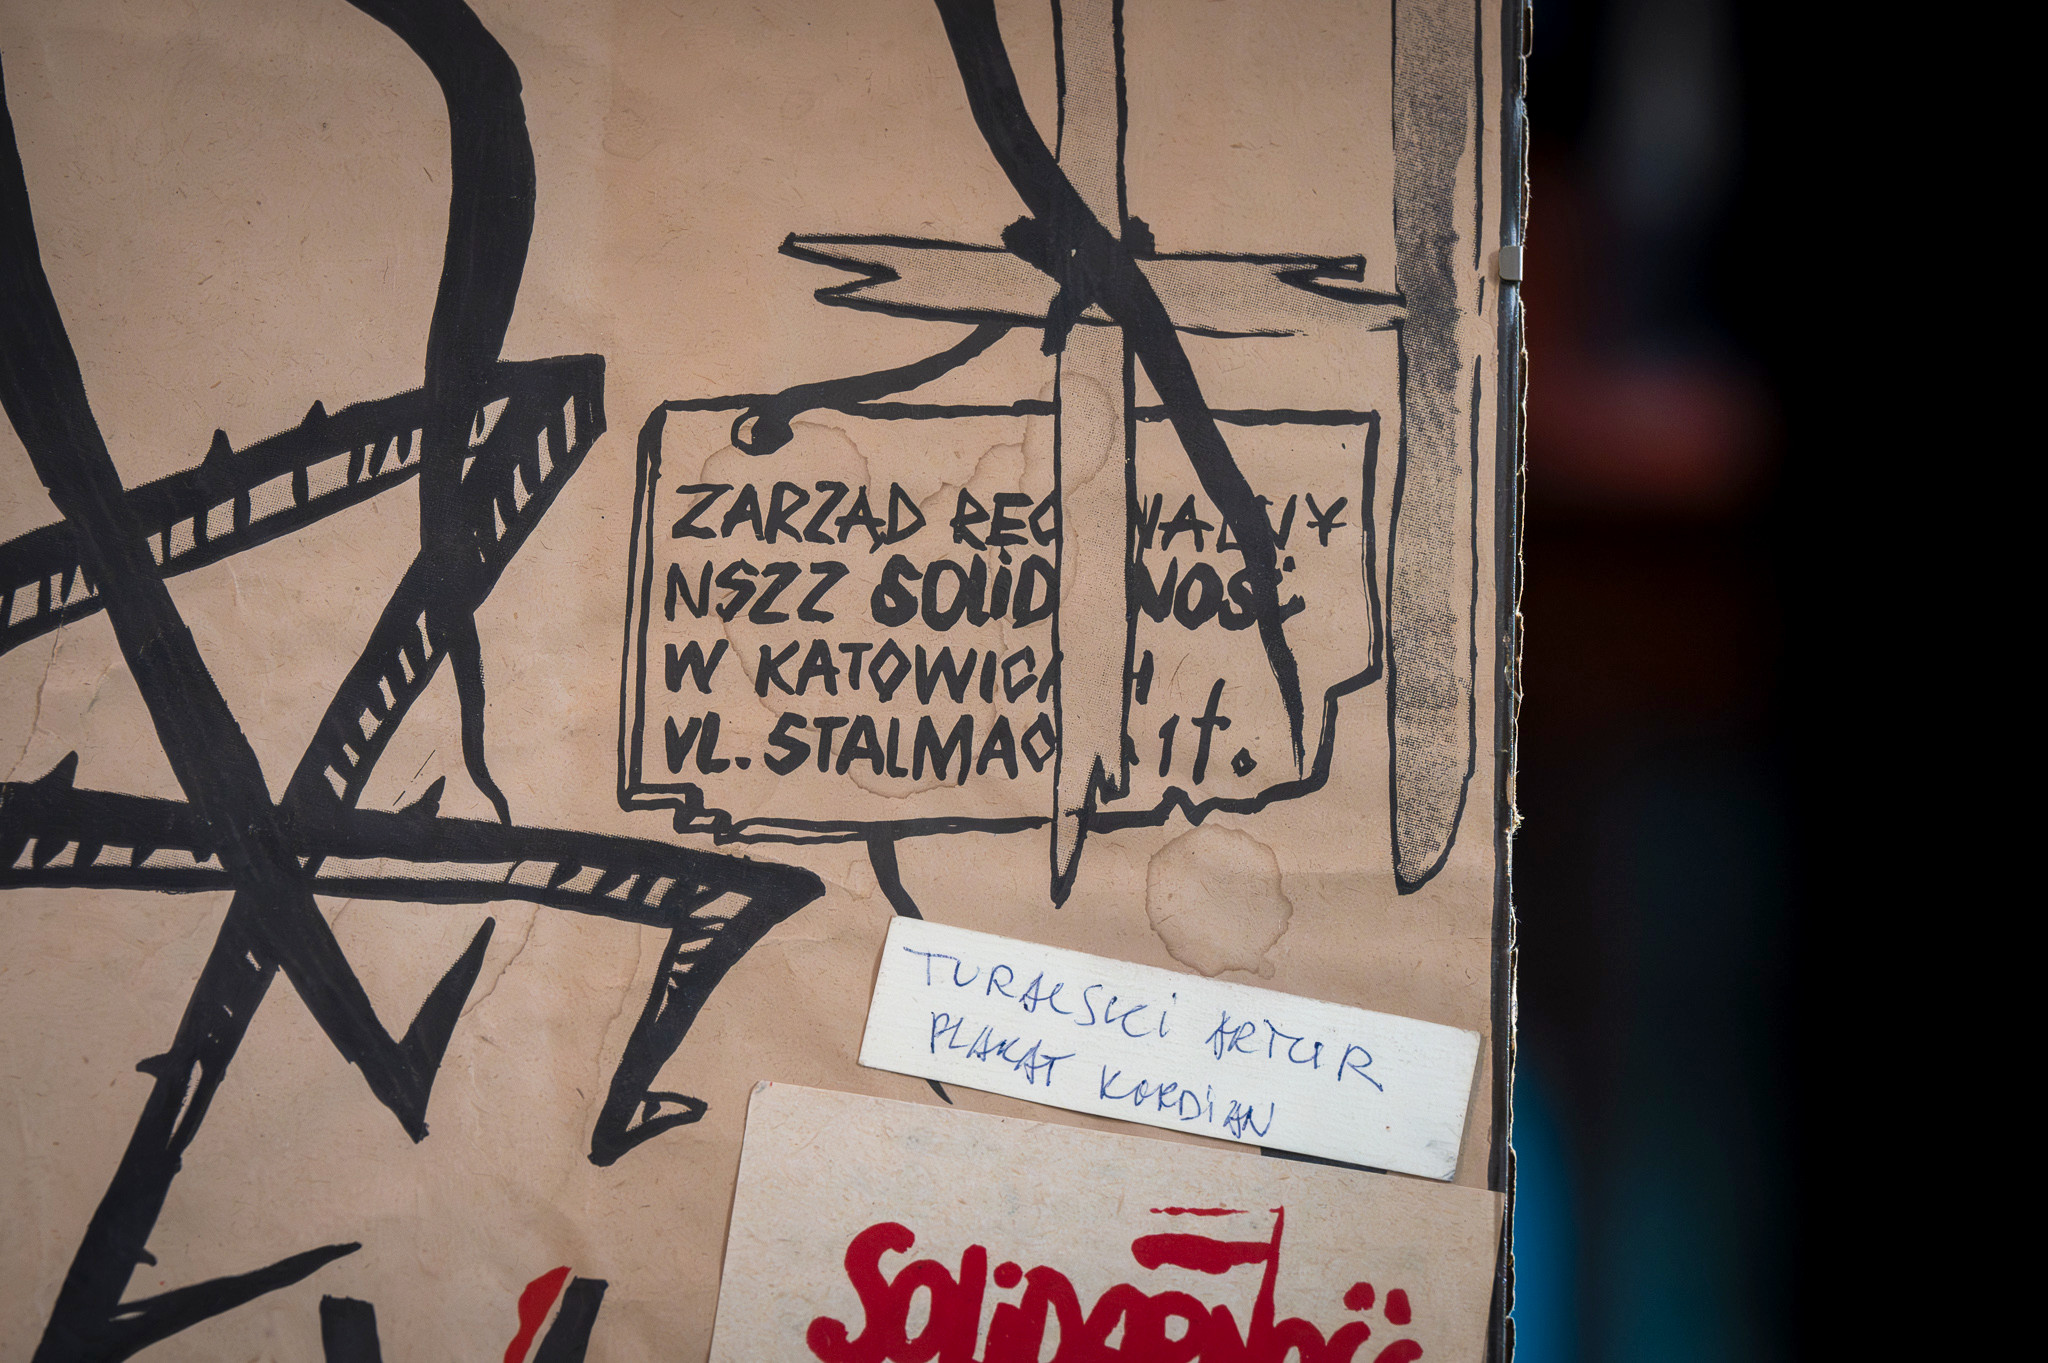 ZARZĄD REGIONALNY
NSZZ SOLIDARNOŚĆ
W KATOWICACH
UL. STALMACHA 17.
TURALSKI ARTUR
PLAKAT KORDIAN
SOLIDARNOŚĆ